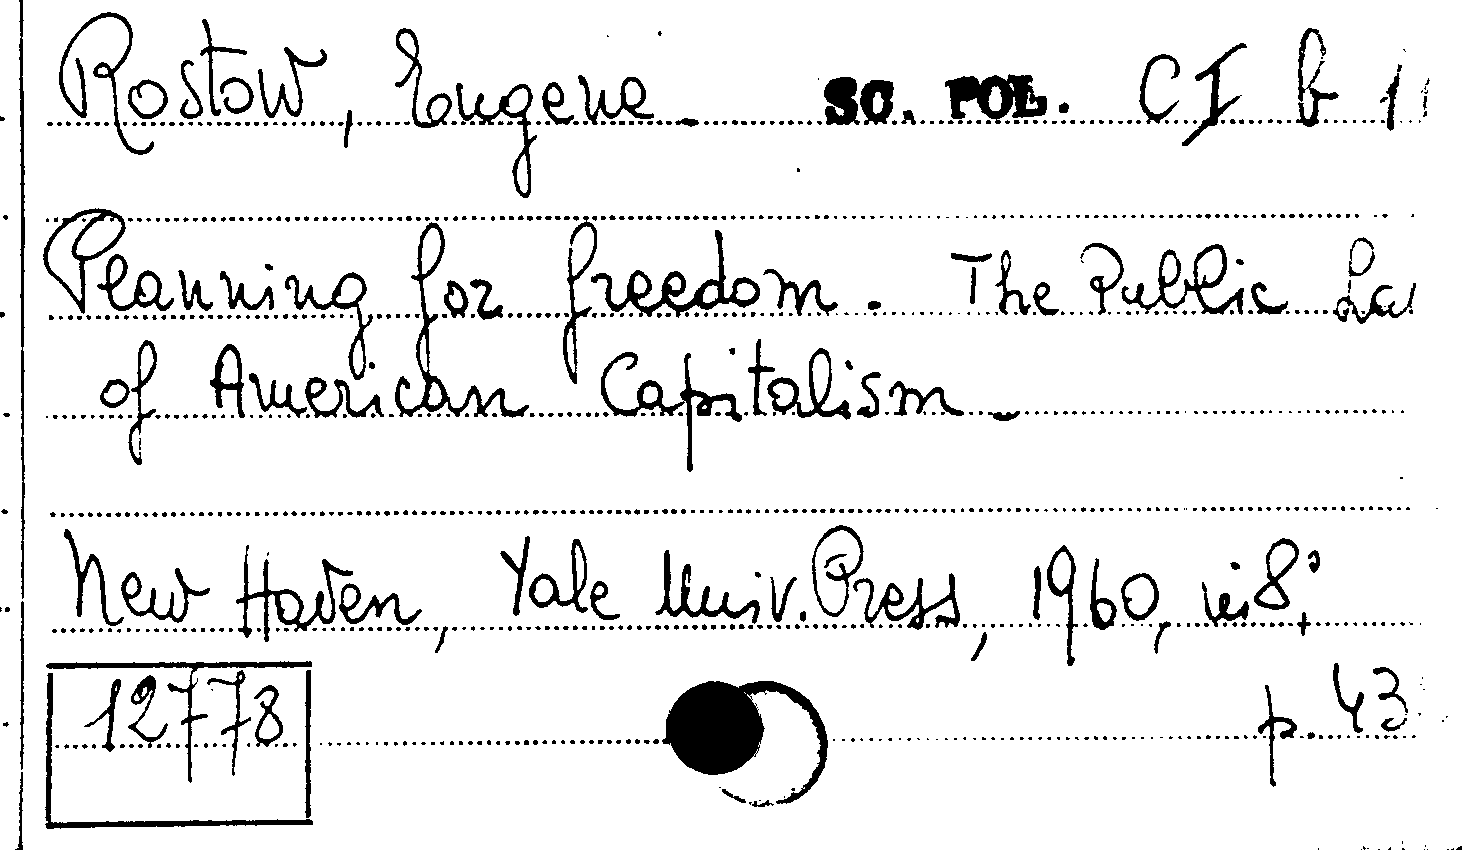 Rostow, Eugene. SC. POL. CI b 1
Planning for freedom. The Public
of American Capitalism.
New Haven, Yale Univ. Press, 1960, in 8°,
12778 p. 43